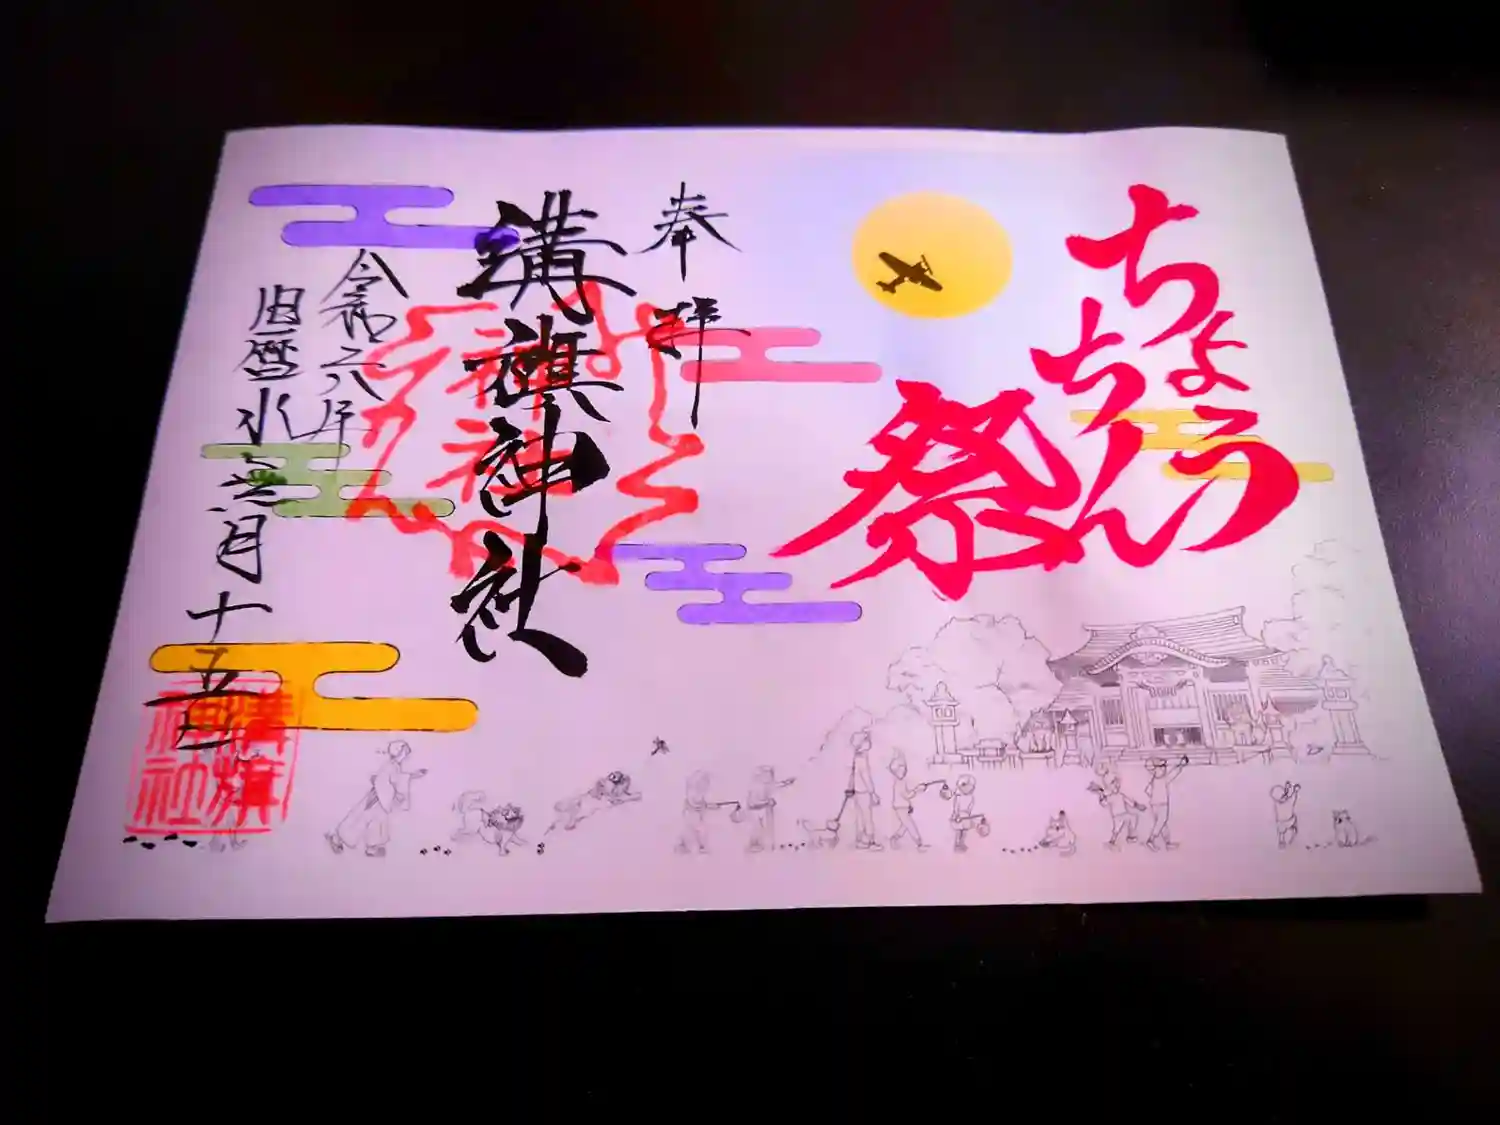 ちょう
ちん
祭
奉拝
溝旗神社
令和六年
旧暦水無月十五日
溝旗
神社